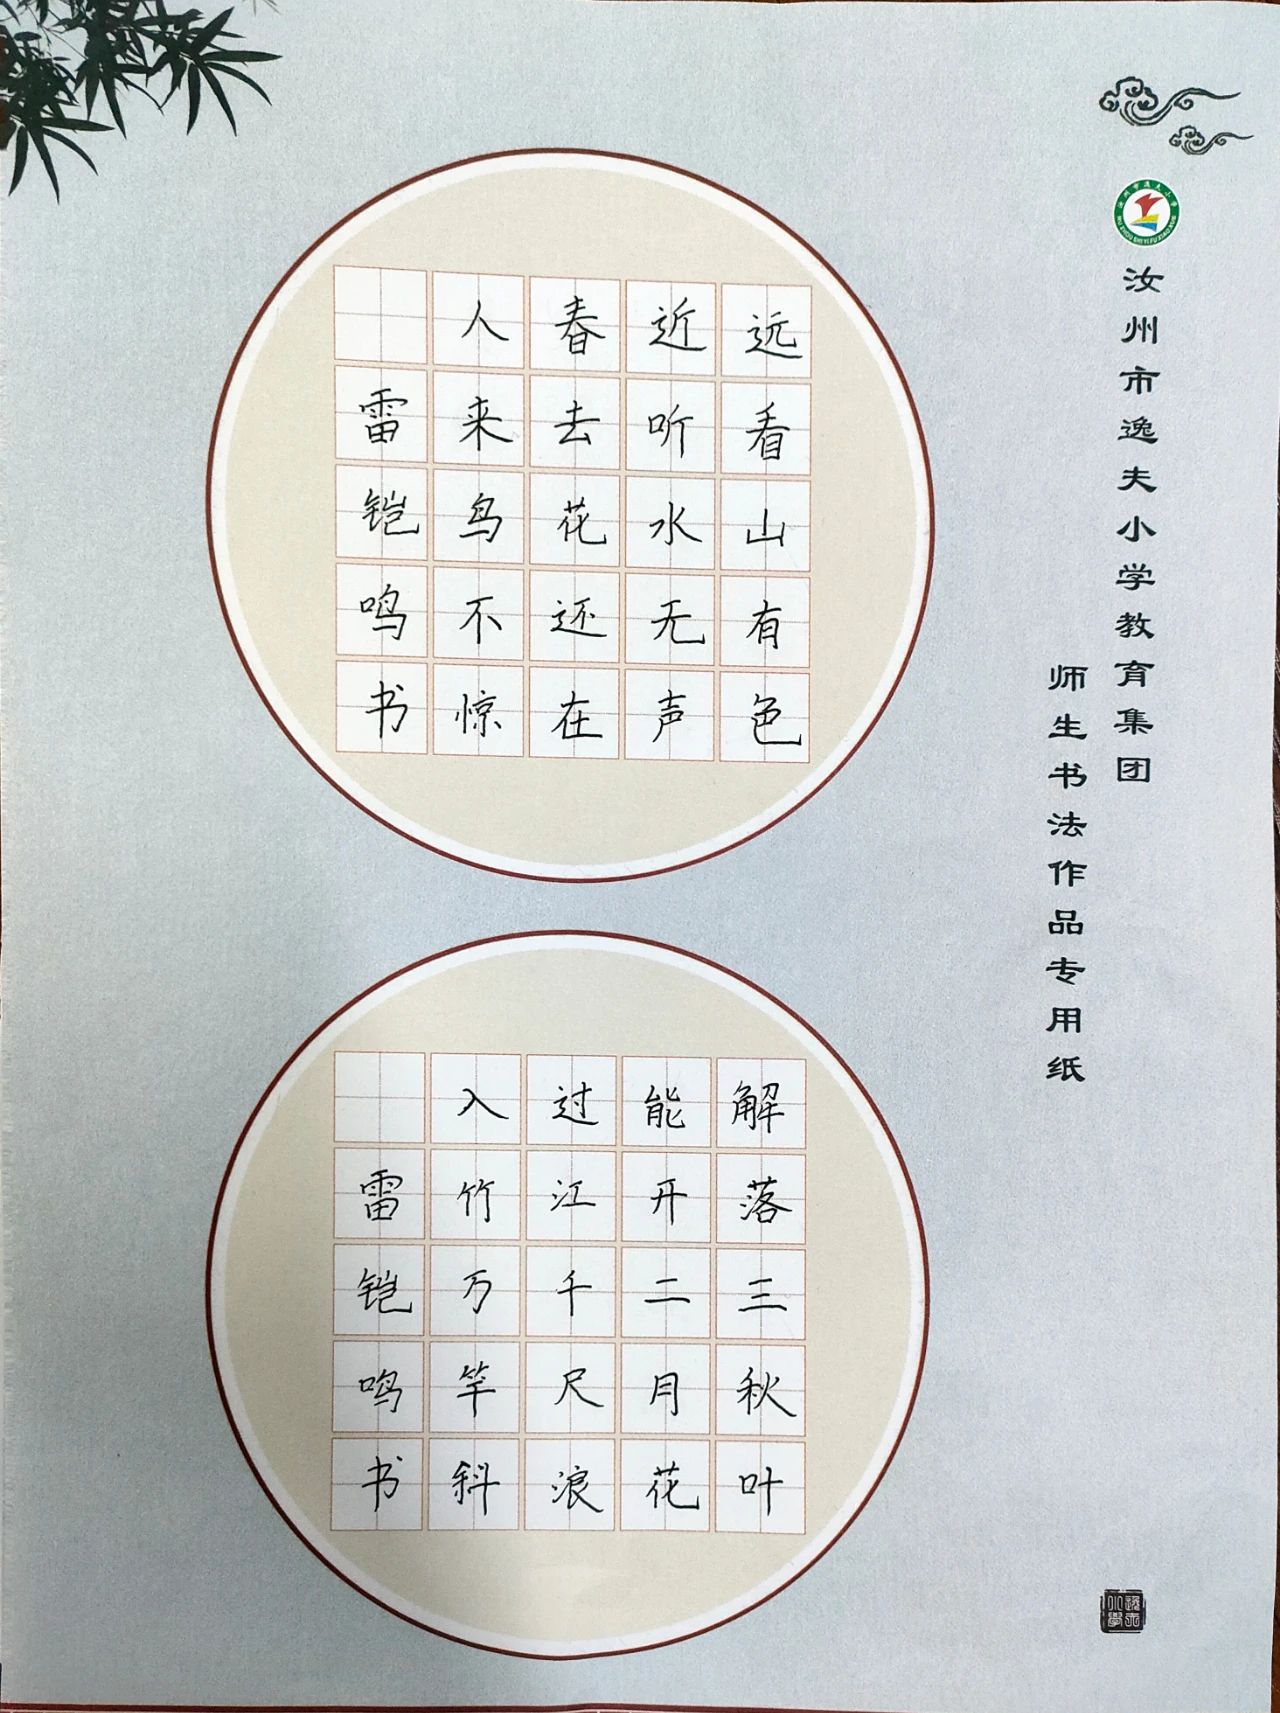 汝州市逸夫小学教育集团
师生书法作品专用纸
远看山有色
近听水无声
春去花还在
人来鸟不惊
雷铠鸣书
解落三秋叶
能开二月花
过江千尺浪
入竹万竿斜
雷铠鸣书